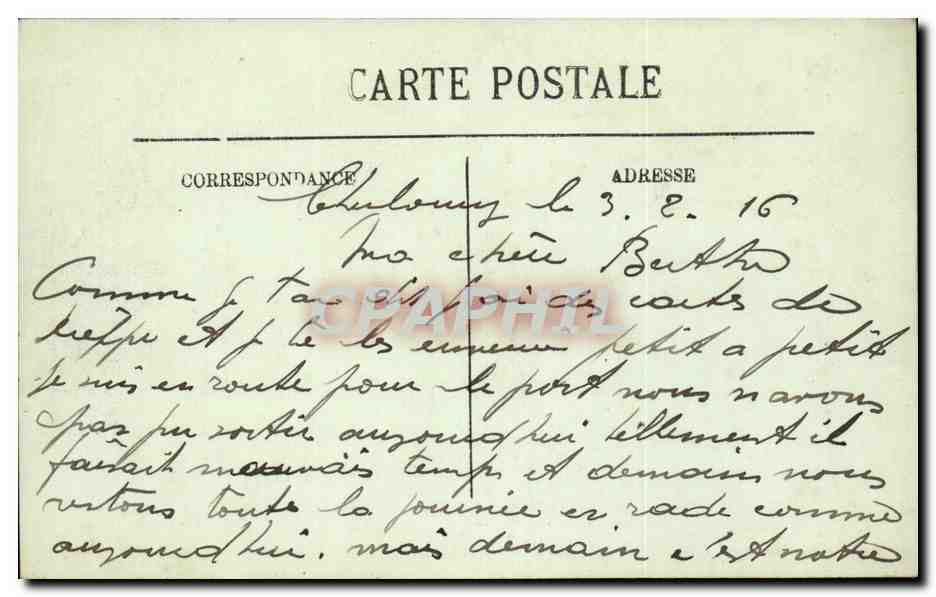 CARTE POSTALE
CORRESPONDANCE
ADRESSE
le 3. 2. 16
Ma chère Berthe
Comme je t'ai dit j'ai des cartes de
et je te les petit a petit
Je suis en route pour le port nous n'avons
pas pu sortir aujourd'hui tellement il
faisait mauvais temps et demain nous
restons toute la journée en rade comme
aujourd'hui. mais demain c'est notre
CPAPHIL